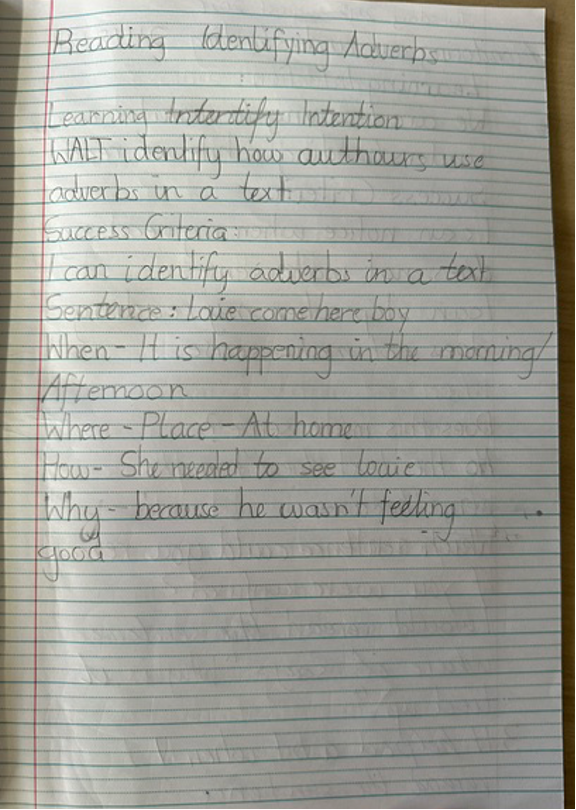 Reading Identifying Adverbs
Learning Intentify Intention
WALT identify how authours use
adverbs in a text
Success Criteria:
I can identify adverbs in a text
Sentence: Louie come here boy
When - It is happening in the morning/
Afternoon
Where - Place - At home
How - She needed to see Louie
Why - because he wasn't feeling
good